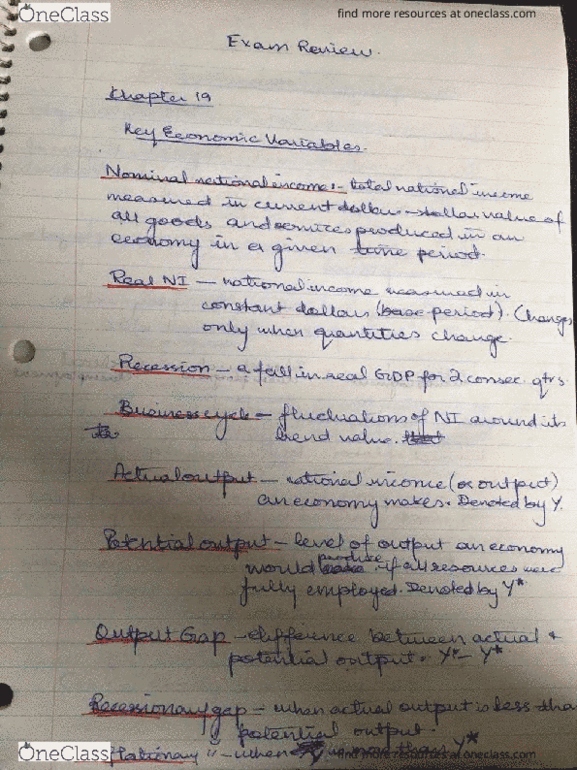 OneClass
find more resources at oneclass.com
Exam Review.
Chapter 19
Key Economic Variables.
Nominal national income :- total national income
measured in current dollars - dollar value of
all goods and services produced in an
economy in a given time period.
Real NI - national income measured in
constant dollars (base period). Changes
only when quantities change.
Recession - a fall in real GDP for 2 consec. qtrs.
Business cycle - fluctuations of NI around its
trend value.
Actual output - national income (or output)
an economy makes. Denoted by Y.
Potential output - level of output an economy
would produce if all resources were
fully employed. Denoted by Y*
Output Gap - difference between actual &
potential output. Y - Y*
Recessionary gap - when actual output is less than
potential output.
OneClass
flationary " - when Y Y*
find more resources at oneclass.com